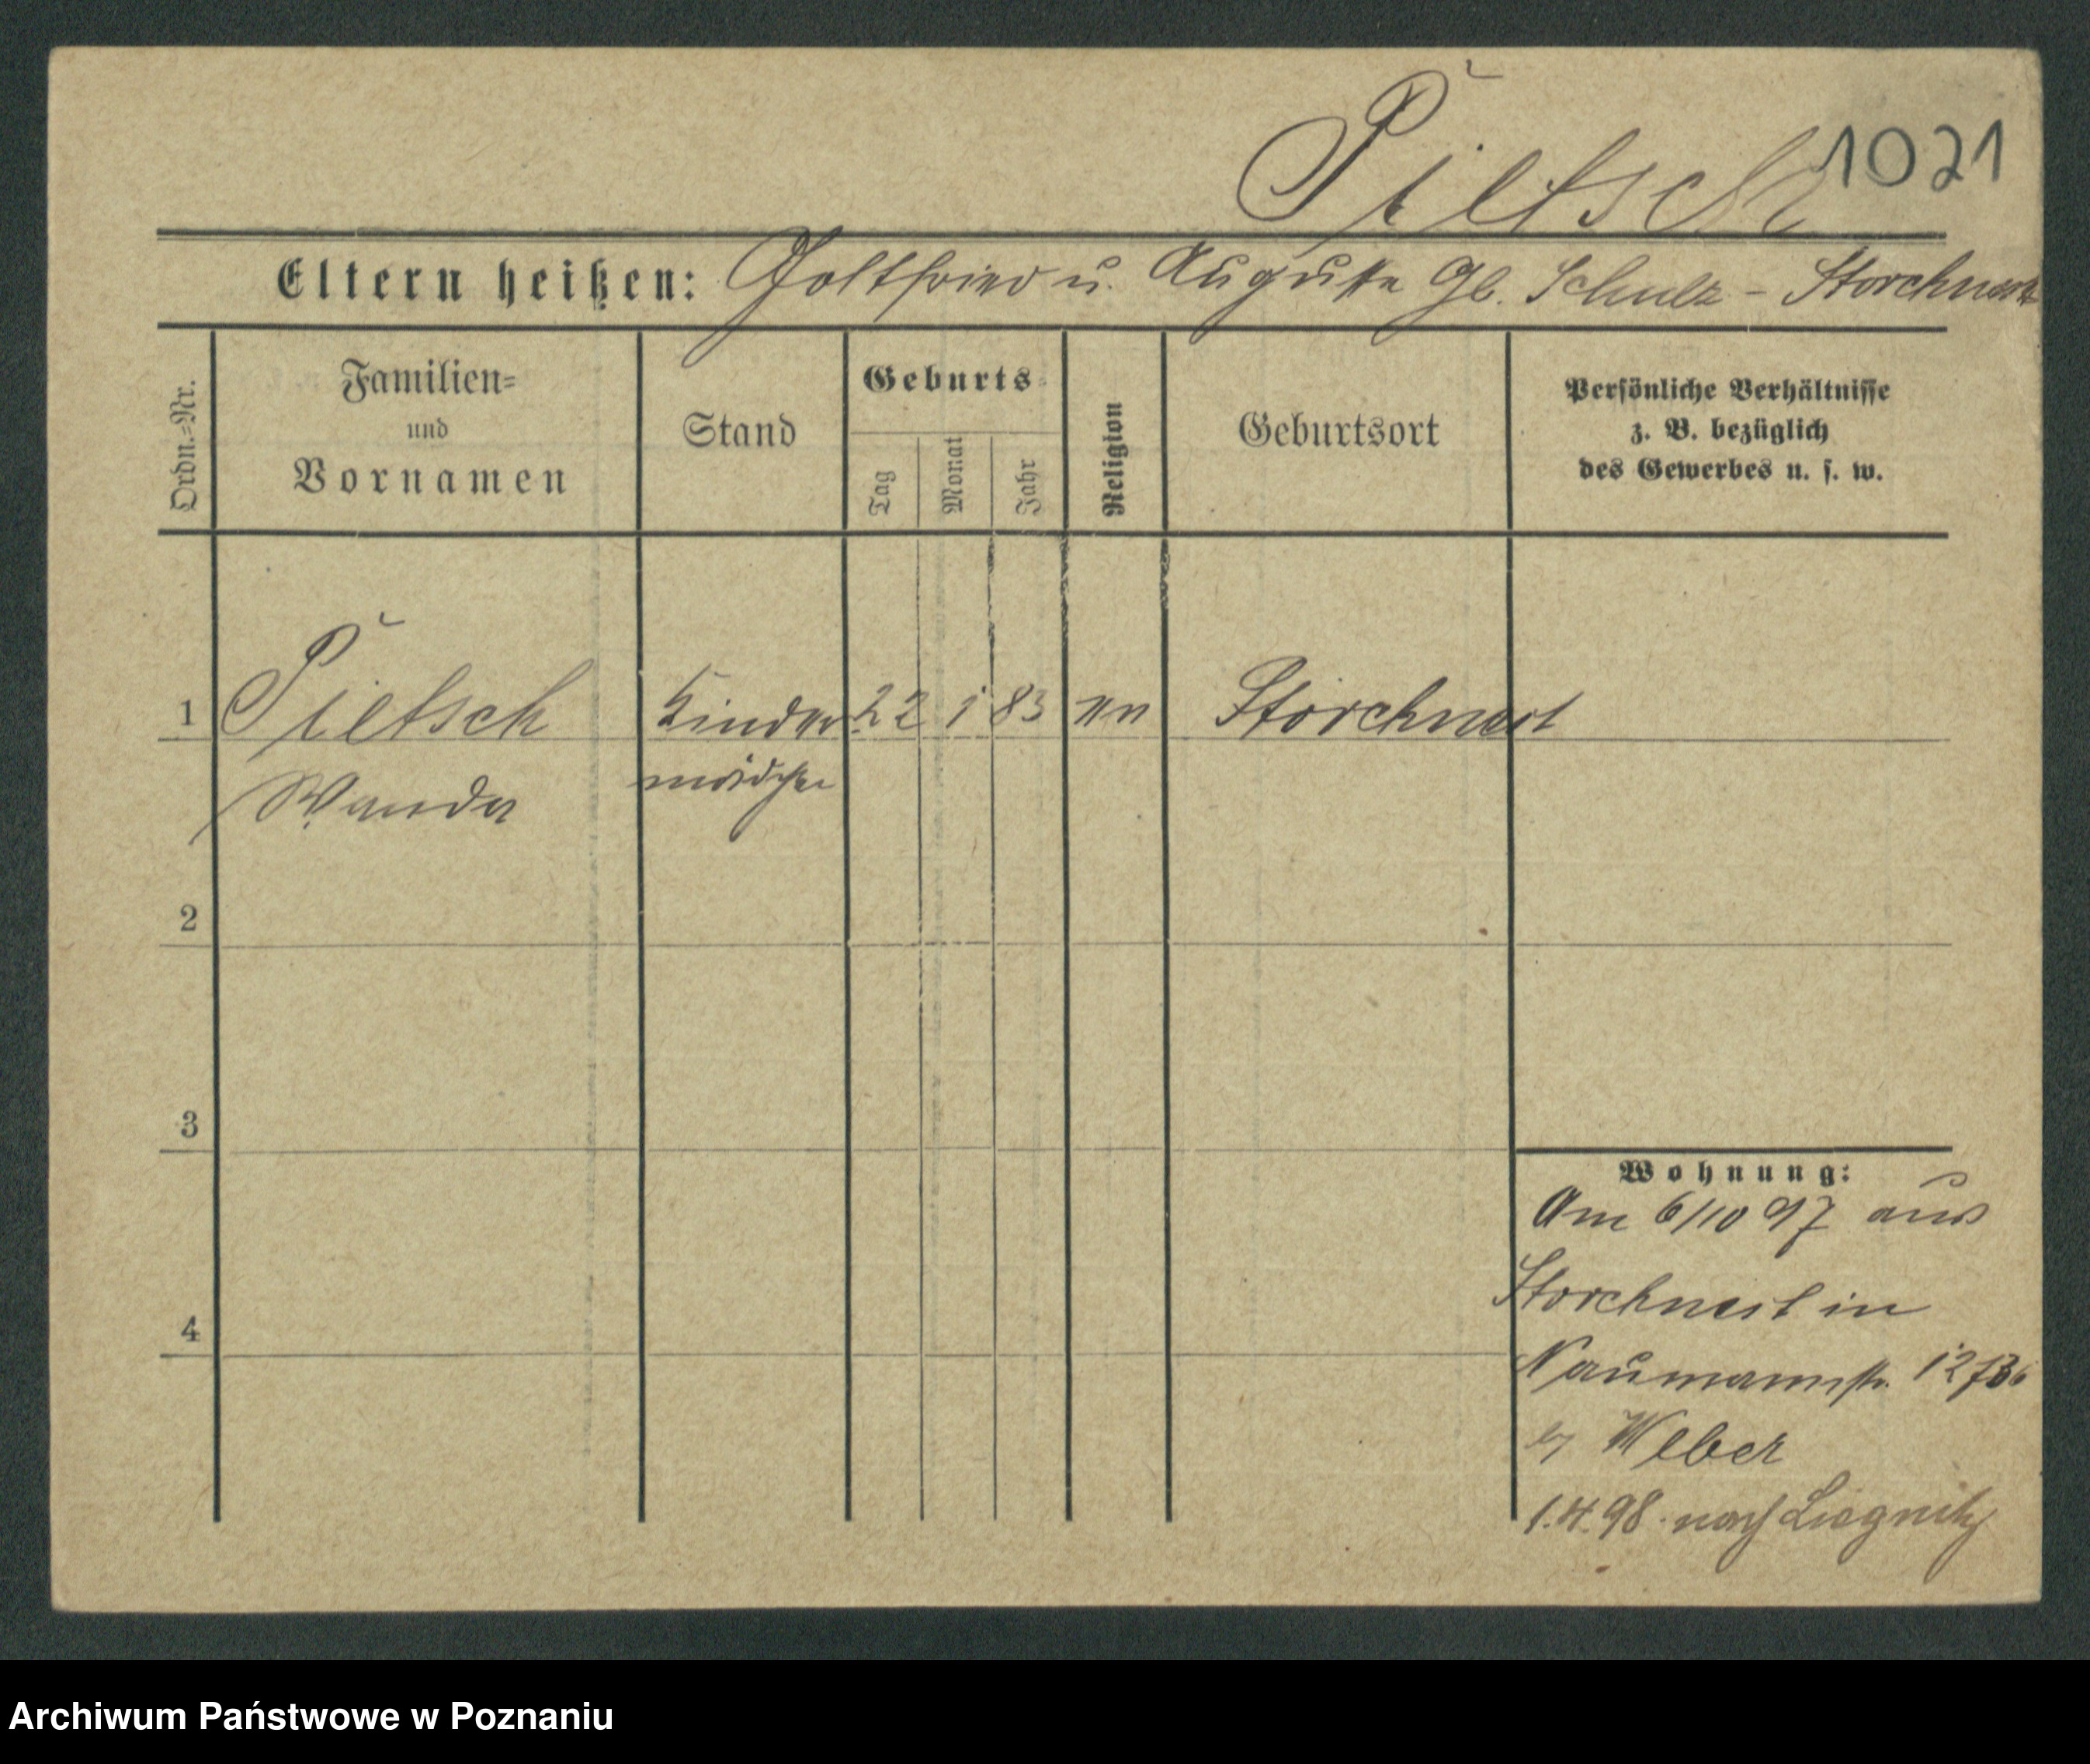 Pietsch 1021
Eltern heißen: Gottfried u. Auguste gb. Schulz - Storchnest
Ordn.=Nr.
Familien=
und
Vornamen
Stand
Geburts=
Tag
Monat
Jahr
Religion
Geburtsort
Persönliche Verhältnisse
z. B. bezüglich
des Gewerbes u. s. w.
1 Pietsch Kinder 22 1 83 Storchnest
Wanda mädchen
2
3
4
Wohnung:
Am 6/10 97 aus
Storchnest in
Naumannstr. 12
Weber
1.4.98. nach Liegnitz
Archiwum Państwowe w Poznaniu